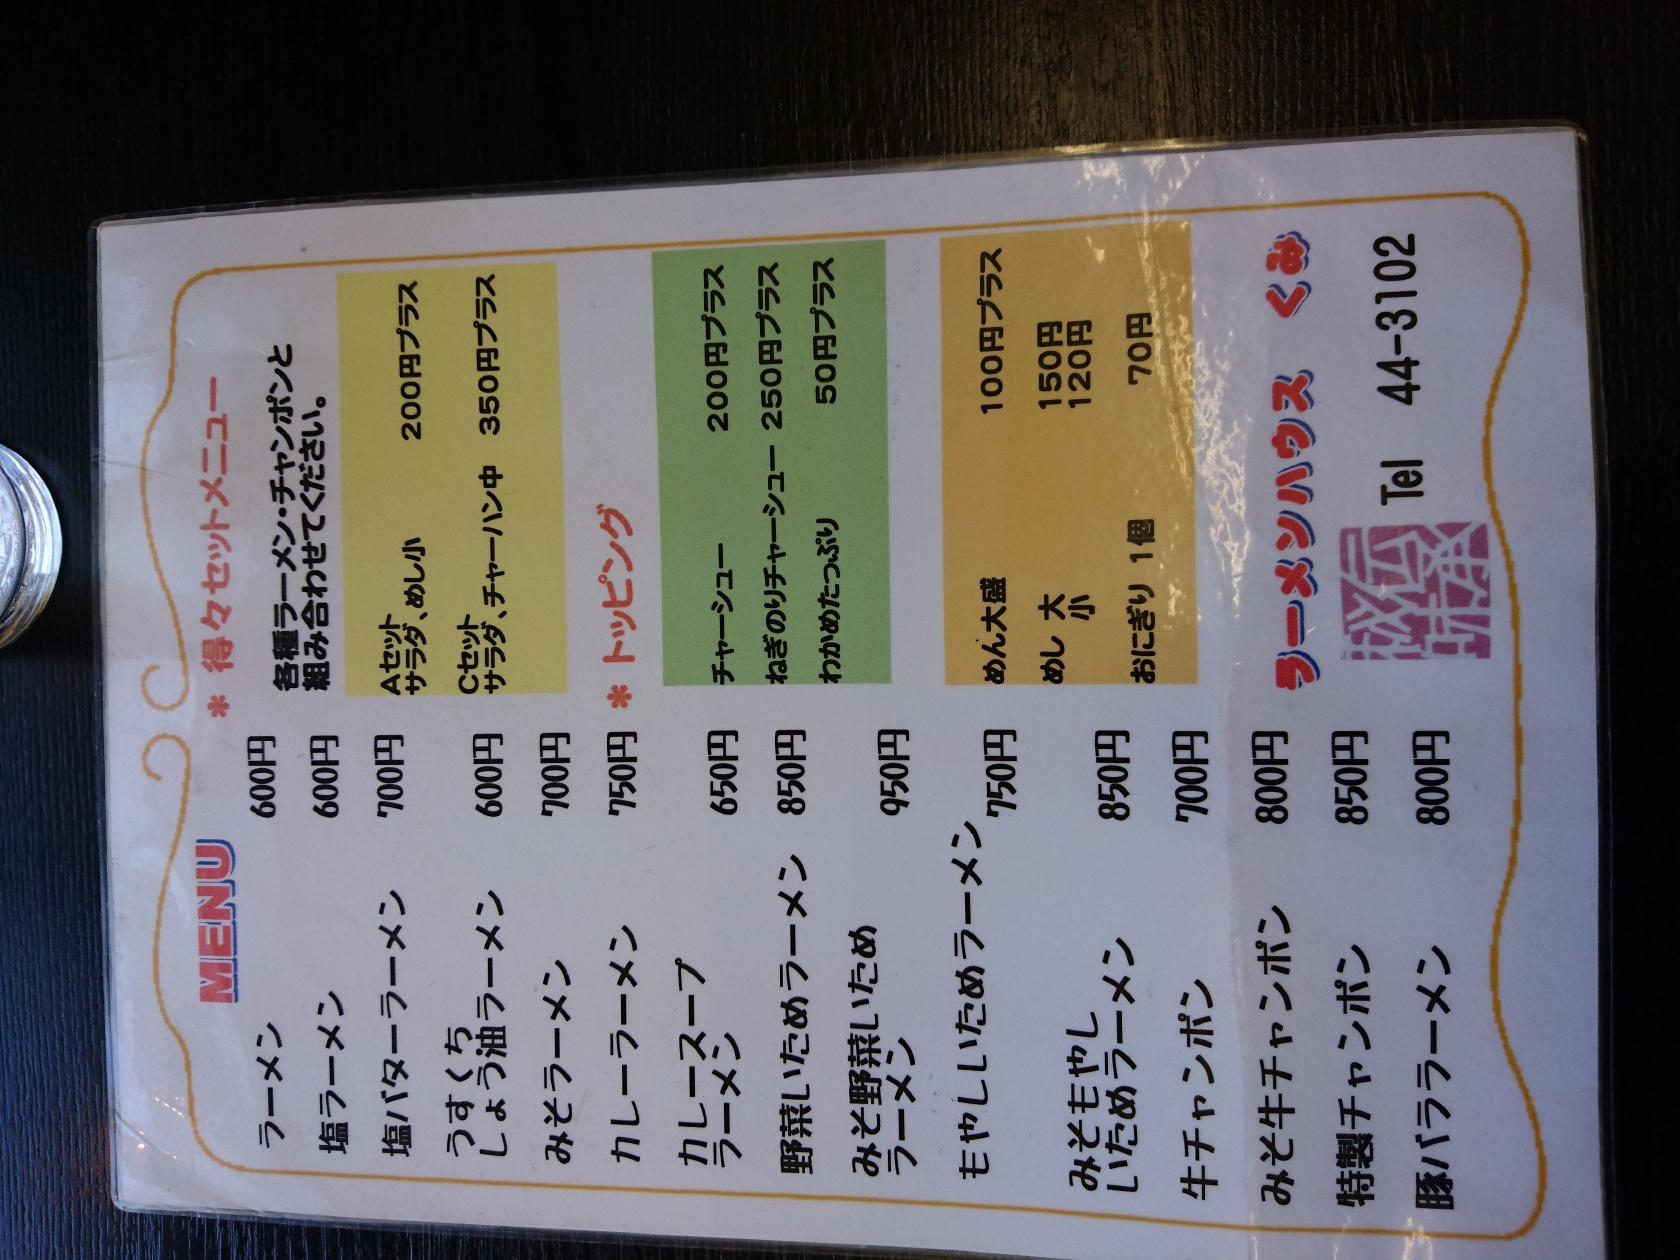 MENU
ラーメン 600円
塩ラーメン 600円
塩バターラーメン 700円
うすくち
しょう油ラーメン 600円
みそラーメン 700円
カレーラーメン 750円
カレースープ
ラーメン 650円
野菜いためラーメン 850円
みそ野菜いため
ラーメン 950円
もやしいためラーメン 750円
みそもやし
いためラーメン 850円
牛チャンポン 700円
みそ牛チャンポン 800円
特製チャンポン 850円
豚バララーメン 800円
* 得々セットメニュー
各種ラーメン・チャンポンと
組み合わせてください。
Aセット
サラダ、めし小 200円プラス
Cセット
サラダ、チャーハン中 350円プラス
* トッピング
チャーシュー 200円プラス
ねぎのりチャーシュー 250円プラス
わかめたっぷり 50円プラス
めん大盛 100円プラス
めし 大 150円
小 120円
おにぎり 1個 70円
ラーメンハウス くみ
Tel 44-3102